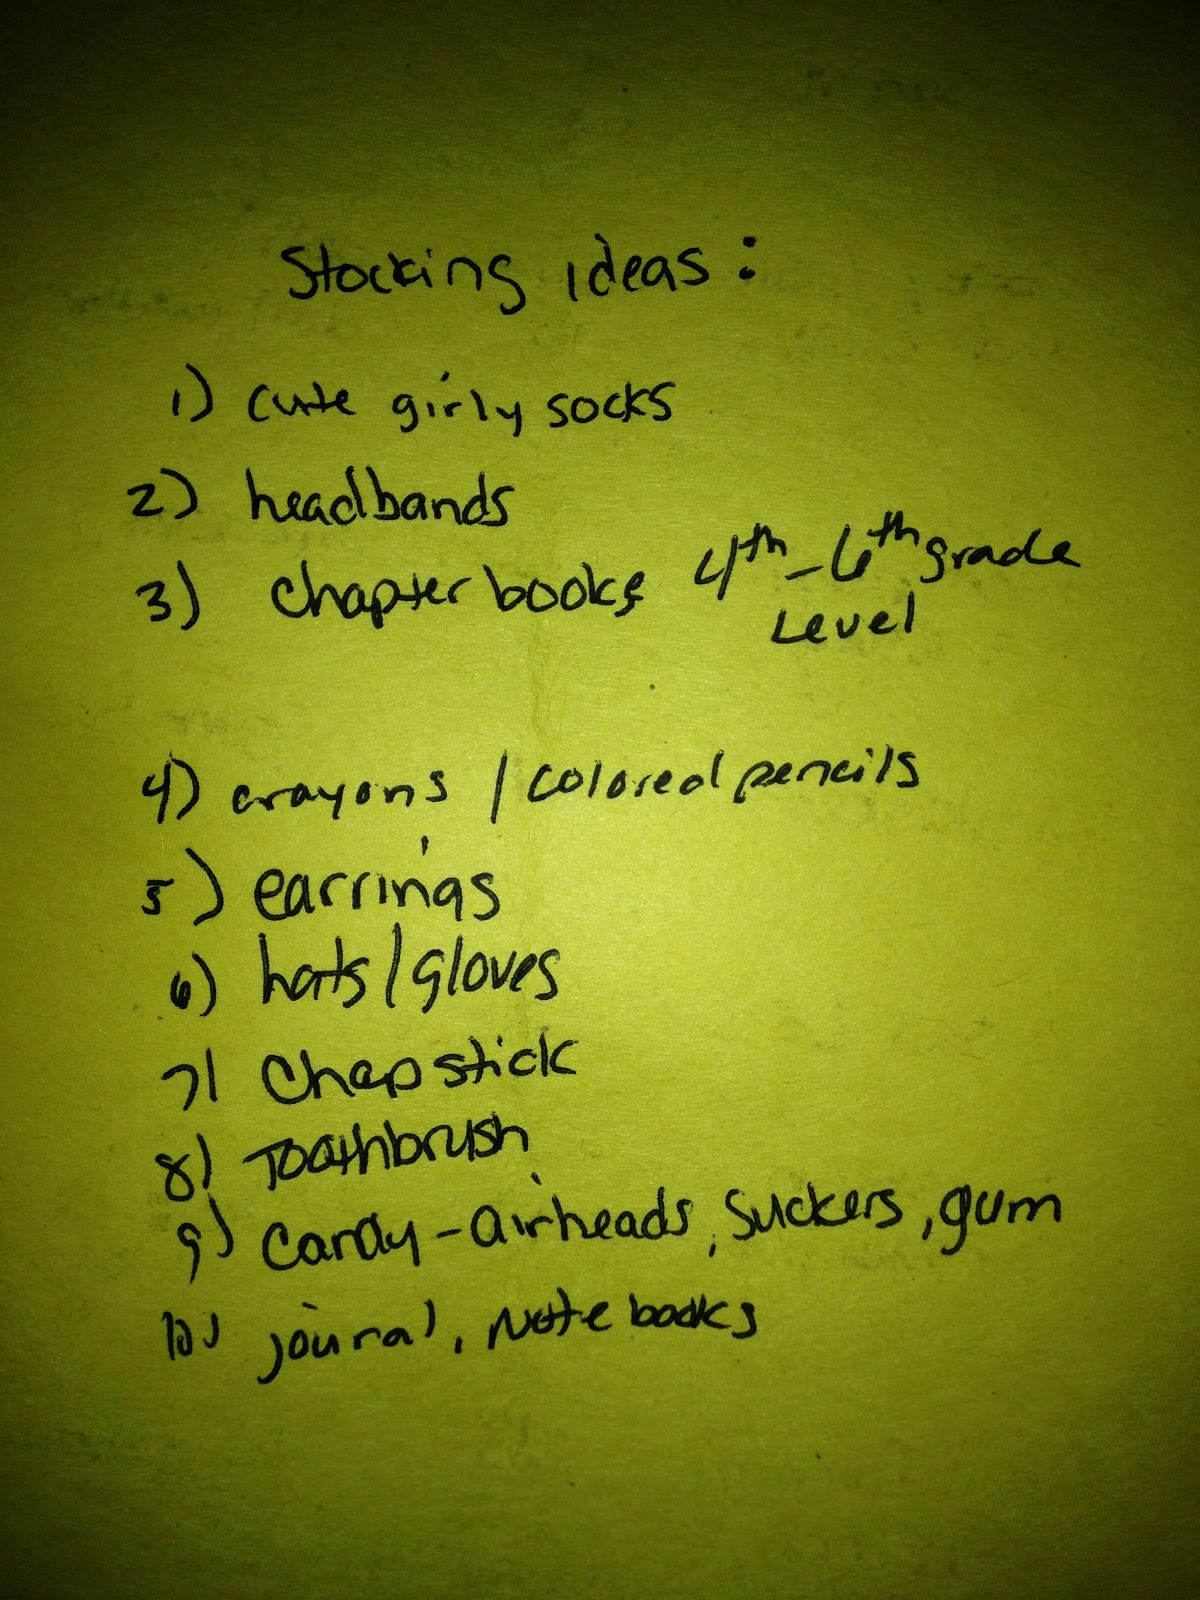 Stocking ideas:
1) cute girly socks
2) headbands
3) chapter books 4th-6th grade
Level
4) crayons / colored pencils
5) earrings
6) hats/gloves
7) Chapstick
8) Toothbrush
9) Candy-airheads, suckers, gum
10) joural, Notebooks